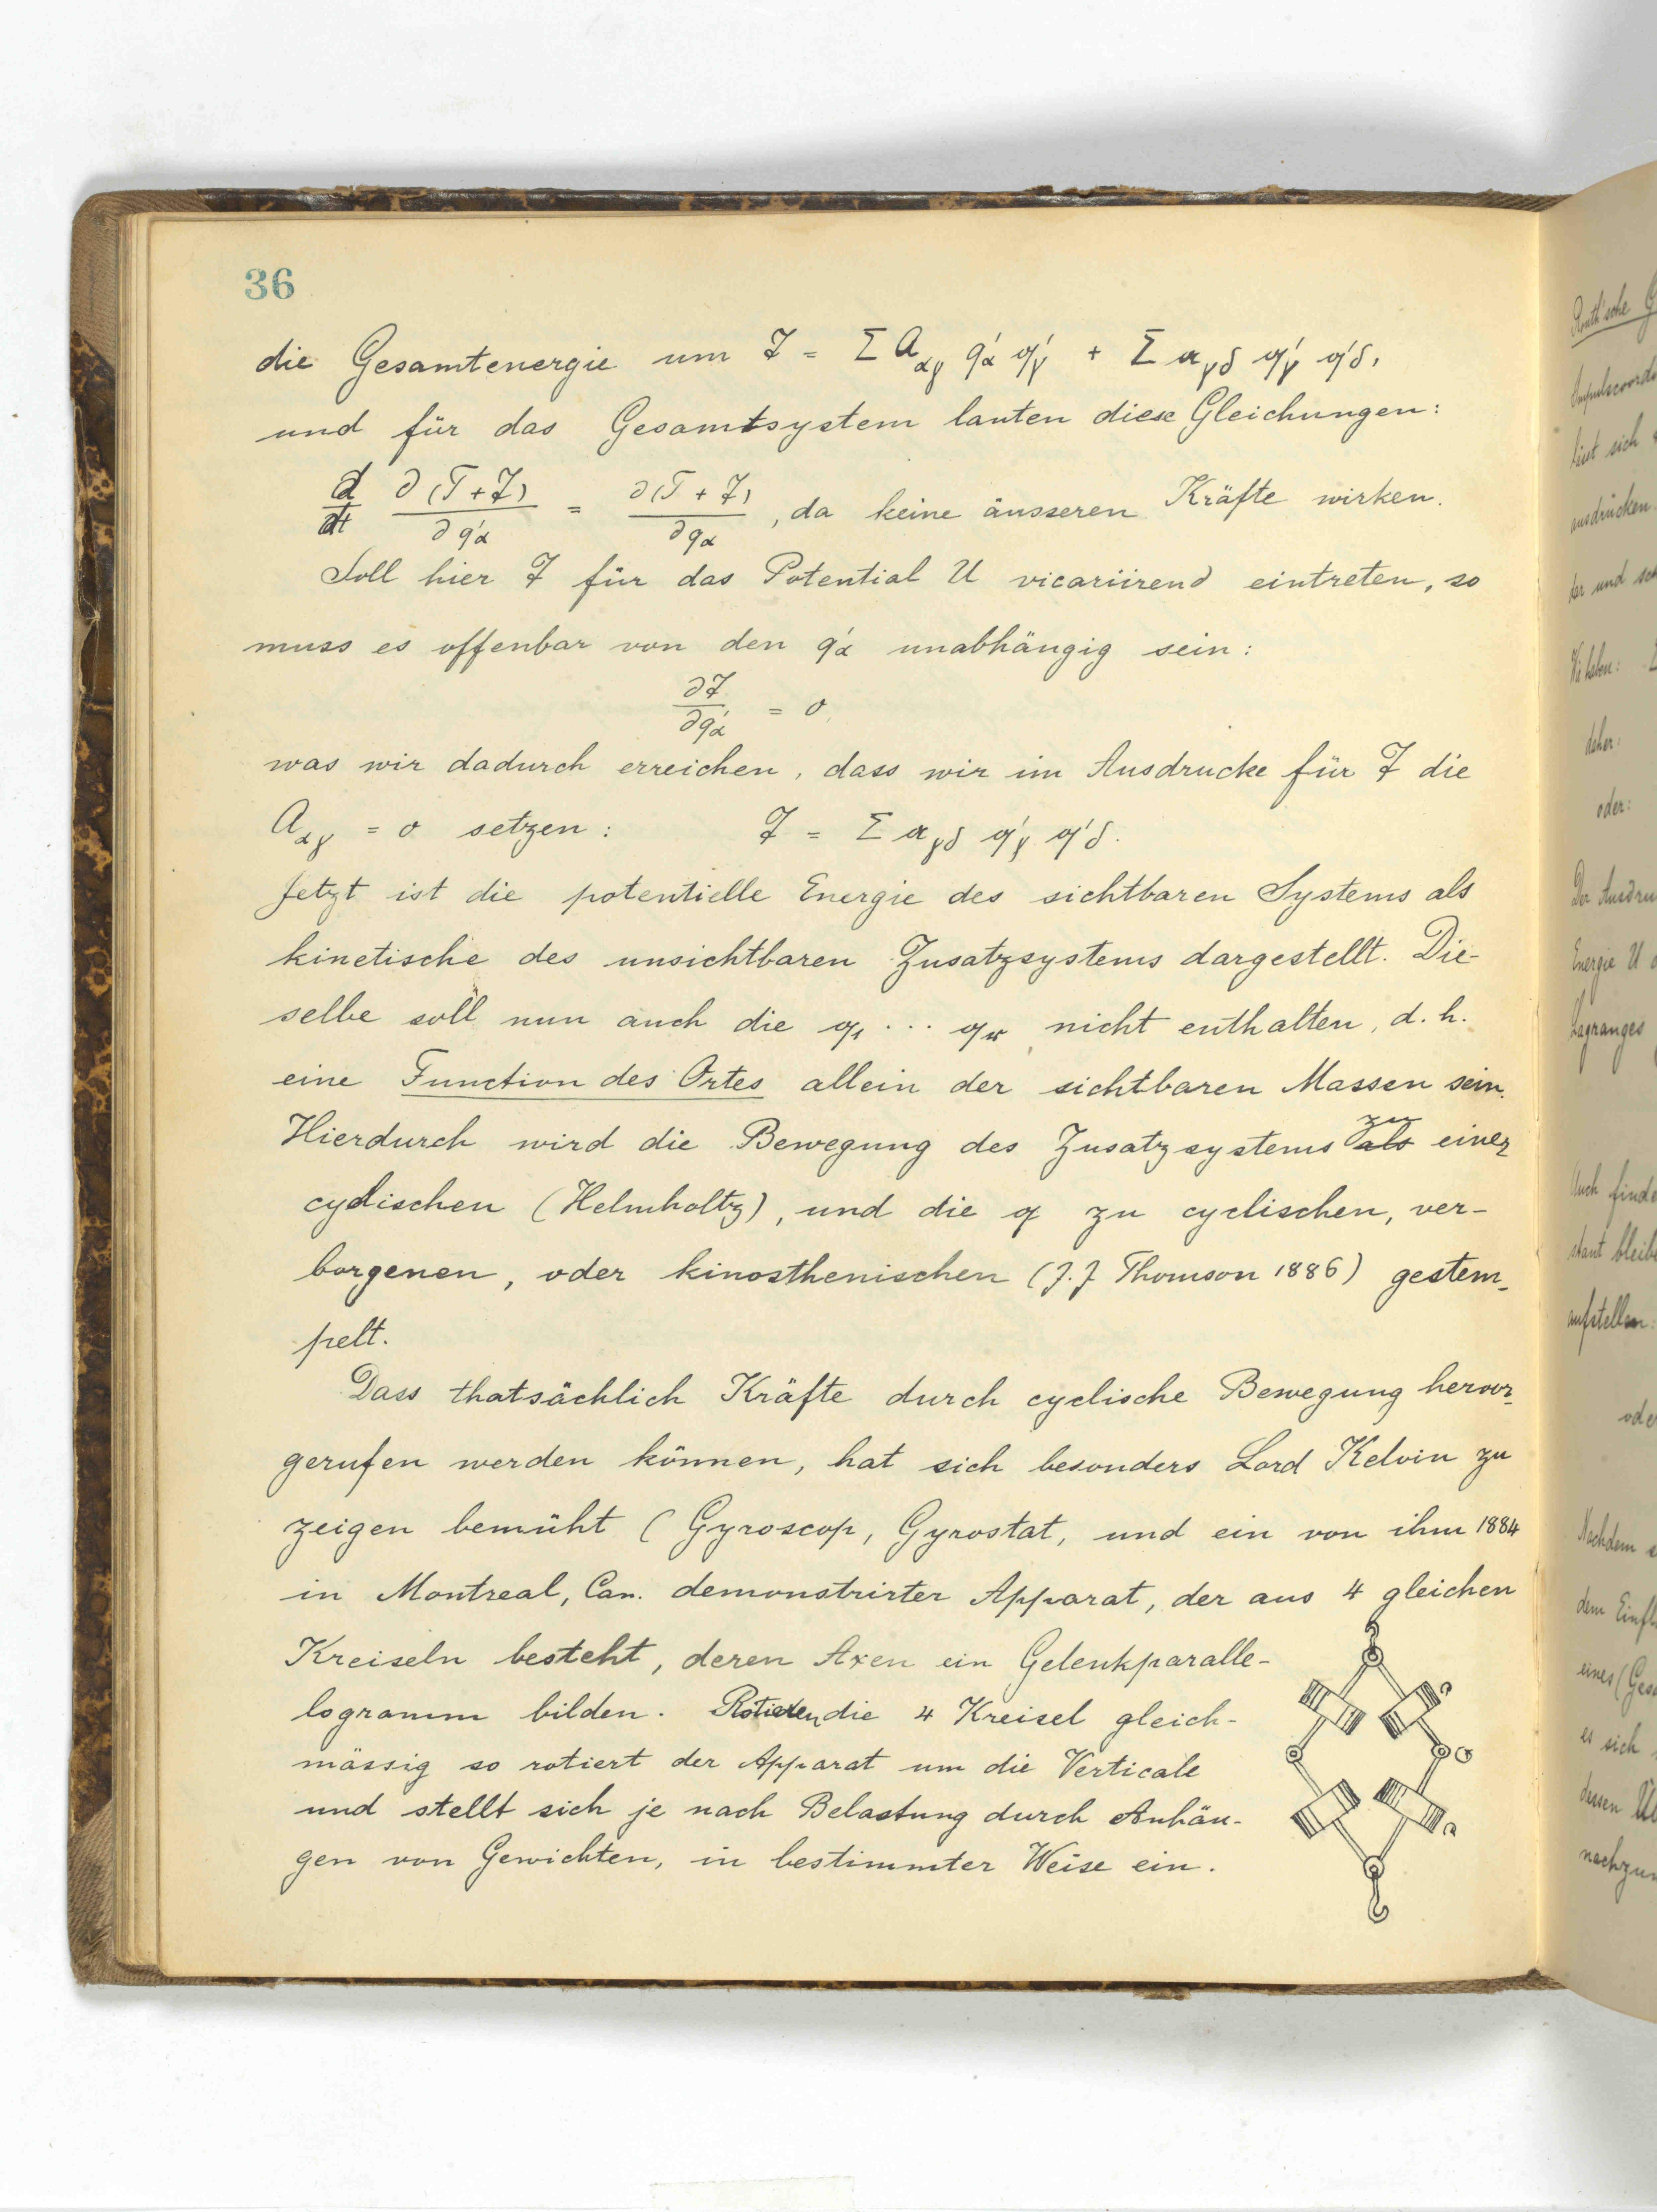 36
die Gesamtenergie um 𝔗 = Σ A_αγ q'_α 𝔮'_γ + Σ 𝔞_γδ 𝔮'_γ 𝔮'_δ,
und für das Gesamtsystem lauten diese Gleichungen:
d/dt ∂(T+𝔗)/∂q'_α = ∂(T+𝔗)/∂q_α, da keine äusseren Kräfte wirken.
Soll hier 𝔗 für das Potential U vicariirend eintreten, so
muss es offenbar von den q'_α unabhängig sein:
∂𝔗/∂q'_α = 0,
was wir dadurch erreichen, dass wir im Ausdrucke für 𝔗 die
A_αγ = 0 setzen: 𝔗 = Σ 𝔞_γδ 𝔮'_γ 𝔮'_δ.
Jetzt ist die potentielle Energie des sichtbaren Systems als
kinetische des unsichtbaren Zusatzsystems dargestellt. Die-
selbe soll nun auch die 𝔮_1 ... 𝔮_𝔫 nicht enthalten, d.h.
eine Function des Ortes allein der sichtbaren Massen sein.
Hierdurch wird die Bewegung des Zusatzsystems zu als einer
cyclischen (Helmholtz), und die 𝔮 zu cyclischen, ver-
borgenen, oder kinosthenischen (J.J Thomson 1886) gestem-
pelt.
Dass thatsächlich Kräfte durch cyclische Bewegung hervor-
gerufen werden können, hat sich besonders Lord Kelvin zu
zeigen bemüht (Gyroscop, Gyrostat, und ein von ihm 1884
in Montreal, Can. demonstrirter Apparat, der aus 4 gleichen
Kreiseln besteht, deren Axen ein Gelenkparalle-
logramm bilden. Rotieren die 4 Kreisel gleich-
mässig so rotiert der Apparat um die Verticale
und stellt sich je nach Belastung durch Anhän-
gen von Gewichten, in bestimmter Weise ein.
Routh'sche
lässt sich
ausdrücken
der und
Wir haben:
daher:
oder:
Der Ausdru
Energie U
Lagranges
Auch finde
stant bleib
aufstellen:
oder
Nachdem
dem Einfl
eines (Ges
es sich
dessen
nachzu